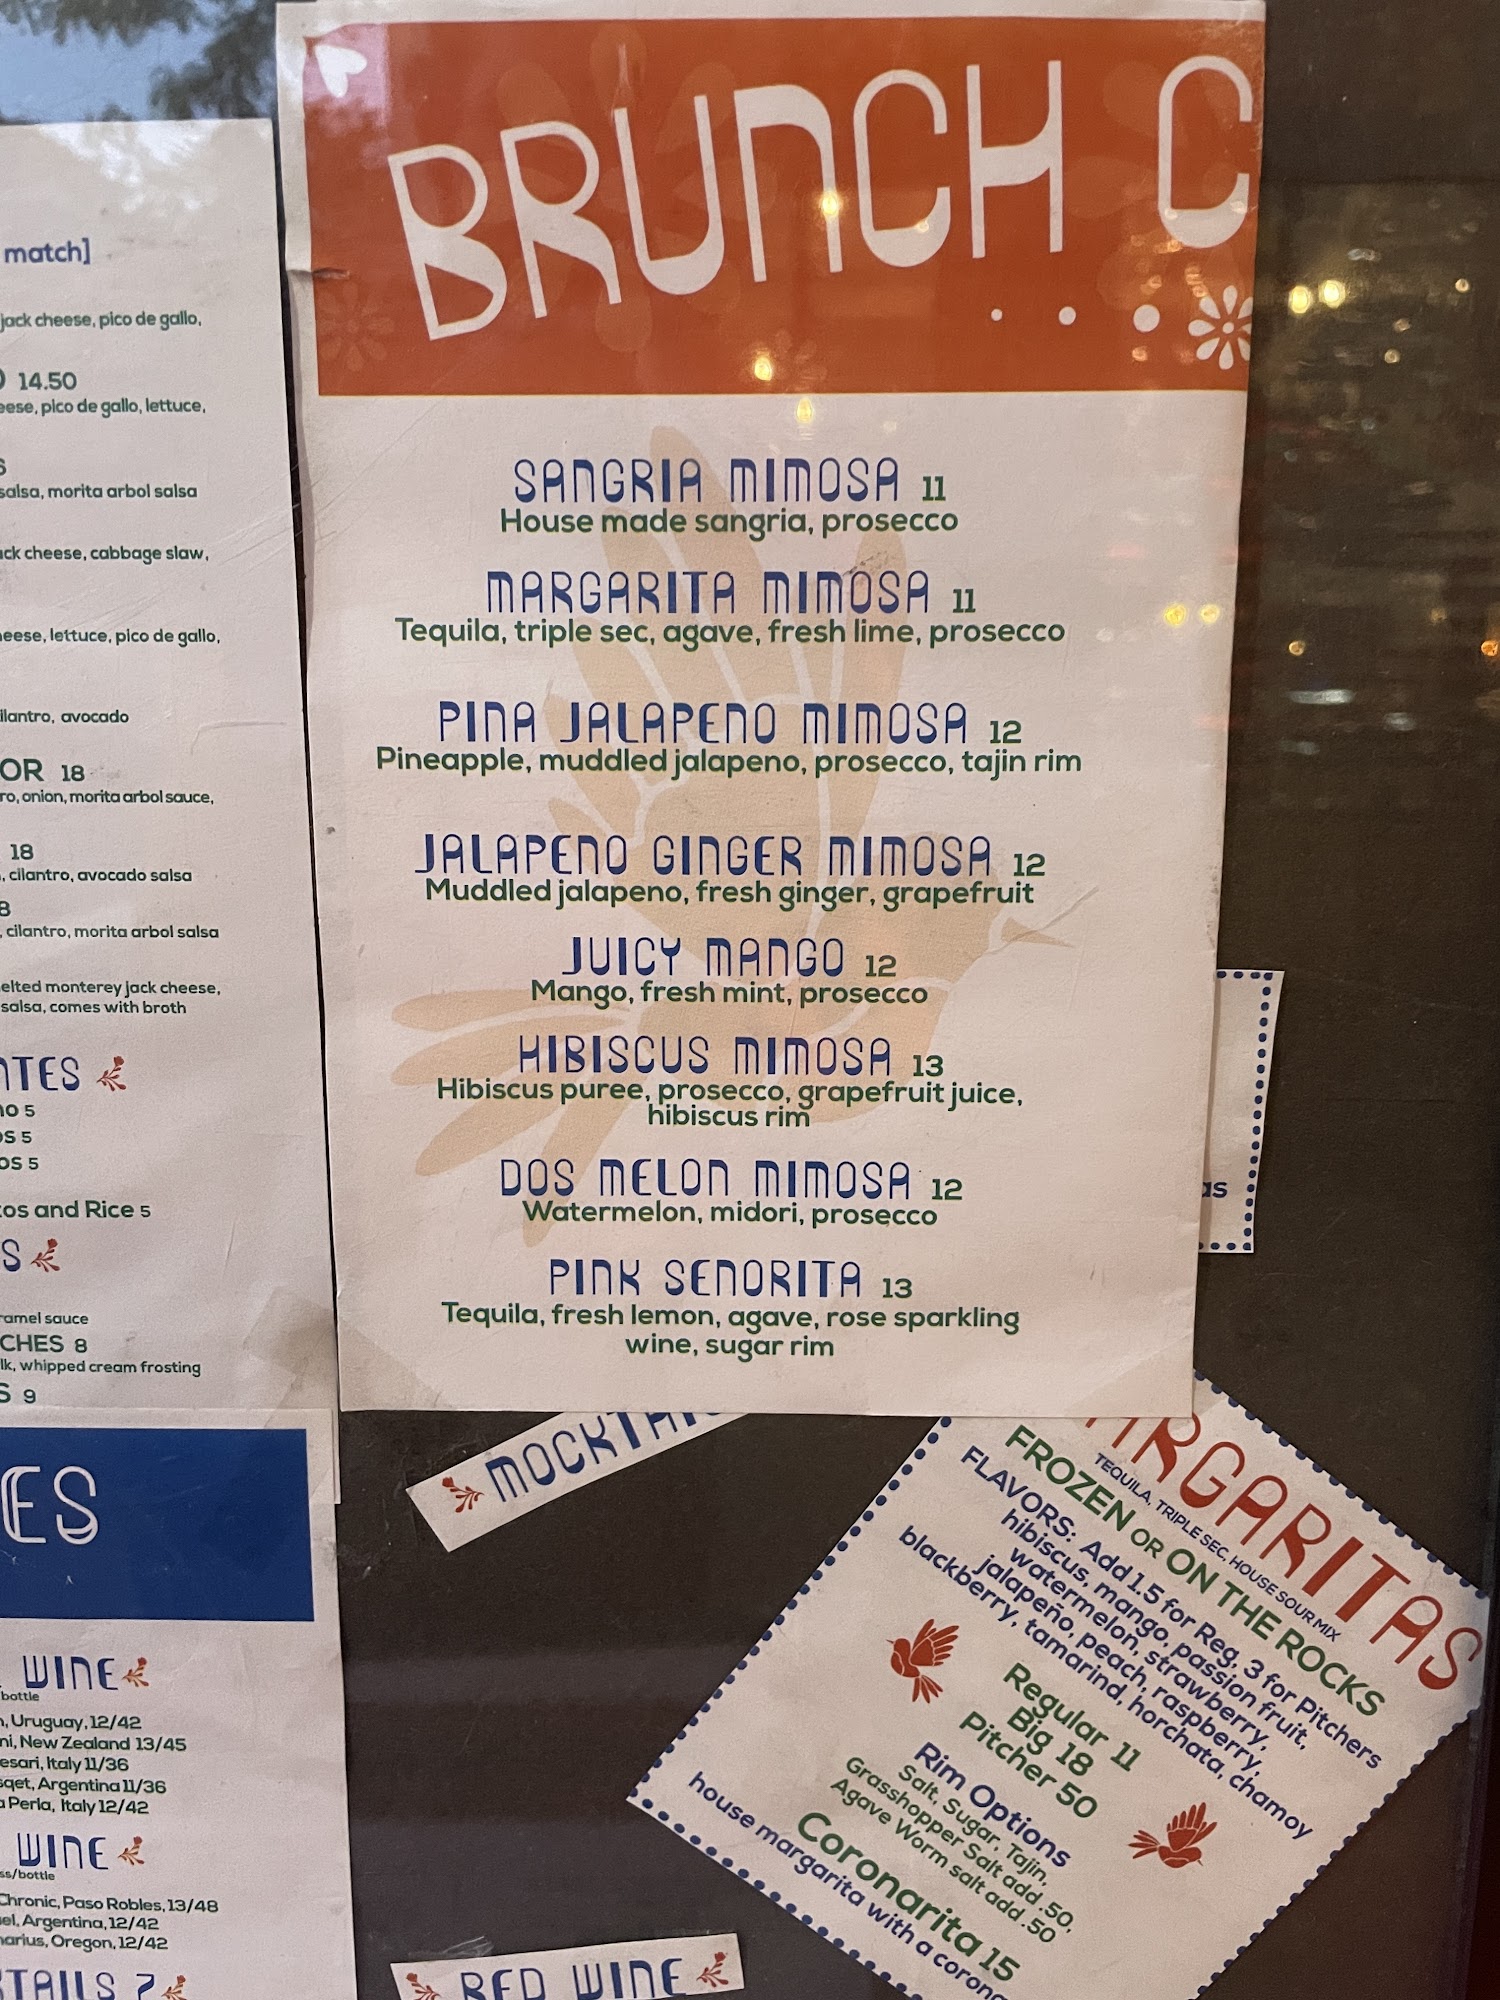 match]
jack cheese, pico de gallo,
14.50
pico de gallo, lettuce,
salsa, morita arbol salsa
cheese, cabbage slaw,
lettuce, pico de gallo,
avocado
18
onion, morita arbol sauce,
18
cilantro, avocado salsa
cilantro, morita arbol salsa
monterey jack cheese,
salsa, comes with broth
5
5
5
and Rice 5
sauce
8
whipped cream frosting
9
WINE
bottle
Uruguay, 12/42
New Zealand 13/45
Italy 11/36
Argentina 11/36
Perla, Italy 12/42
WINE
/bottle
Chronic, Paso Robles, 13/48
Argentina, 12/42
Oregon, 12/42
7
BRUNCH C
SANGRIA MIMOSA 11
House made sangria, prosecco
MARGARITA MIMOSA 11
Tequila, triple sec, agave, fresh lime, prosecco
PINA JALAPENO MIMOSA 12
Pineapple, muddled jalapeno, prosecco, tajin rim
JALAPENO GINGER MIMOSA 12
Muddled jalapeno, fresh ginger, grapefruit
JUICY MANGO 12
Mango, fresh mint, prosecco
HIBISCUS MIMOSA 13
Hibiscus puree, prosecco, grapefruit juice,
hibiscus rim
DOS MELON MIMOSA 12
Watermelon, midori, prosecco
PINK SENORITA 13
Tequila, fresh lemon, agave, rose sparkling
wine, sugar rim
RED WINE
MARGARITAS
TEQUILA, TRIPLE SEC, HOUSE SOUR MIX
FROZEN OR ON THE ROCKS
FLAVORS: Add 1.5 for Reg, 3 for Pitchers
hibiscus, mango, passion fruit,
watermelon, strawberry,
jalapeño, peach, raspberry,
blackberry, tamarind, horchata, chamoy
Regular 11
Big 18
Pitcher 50
Rim Options
Salt, Sugar, Tajin,
Grasshopper Salt add .50,
Agave Worm salt add .50
Coronarita 15
house margarita with a corona